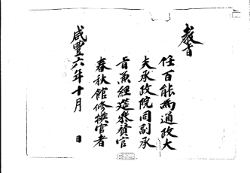 教旨
任百能爲通政大
夫承政院同副承
旨兼經筵參贊官
春秋館修撰官者
咸豐六年十月　日